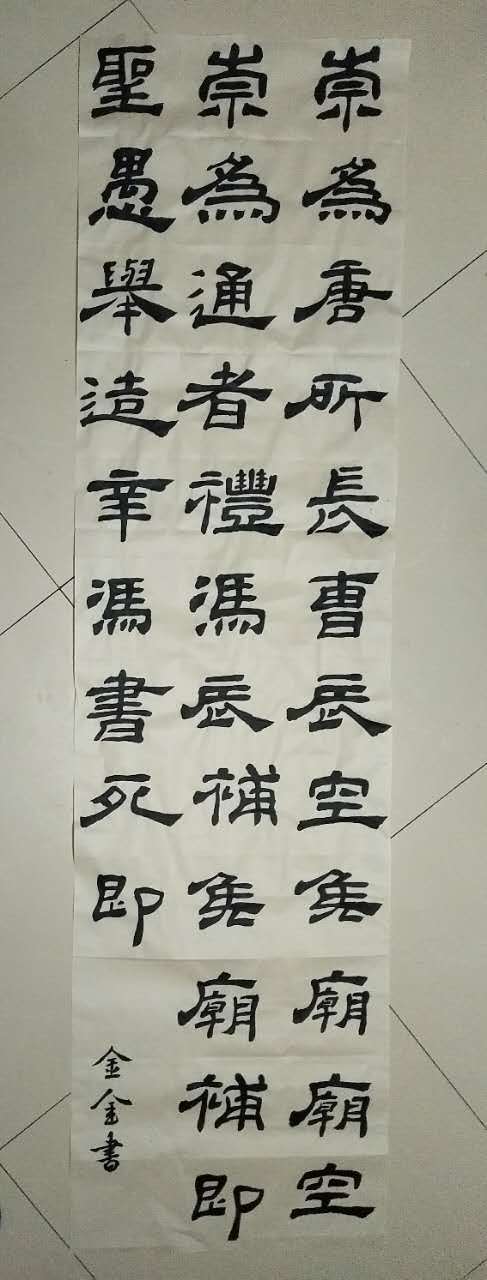 崇為唐所長曹辰空矦廟廟空
崇為通者禮馮辰補矦廟補即
聖愚舉造幸馮書死即
金金書